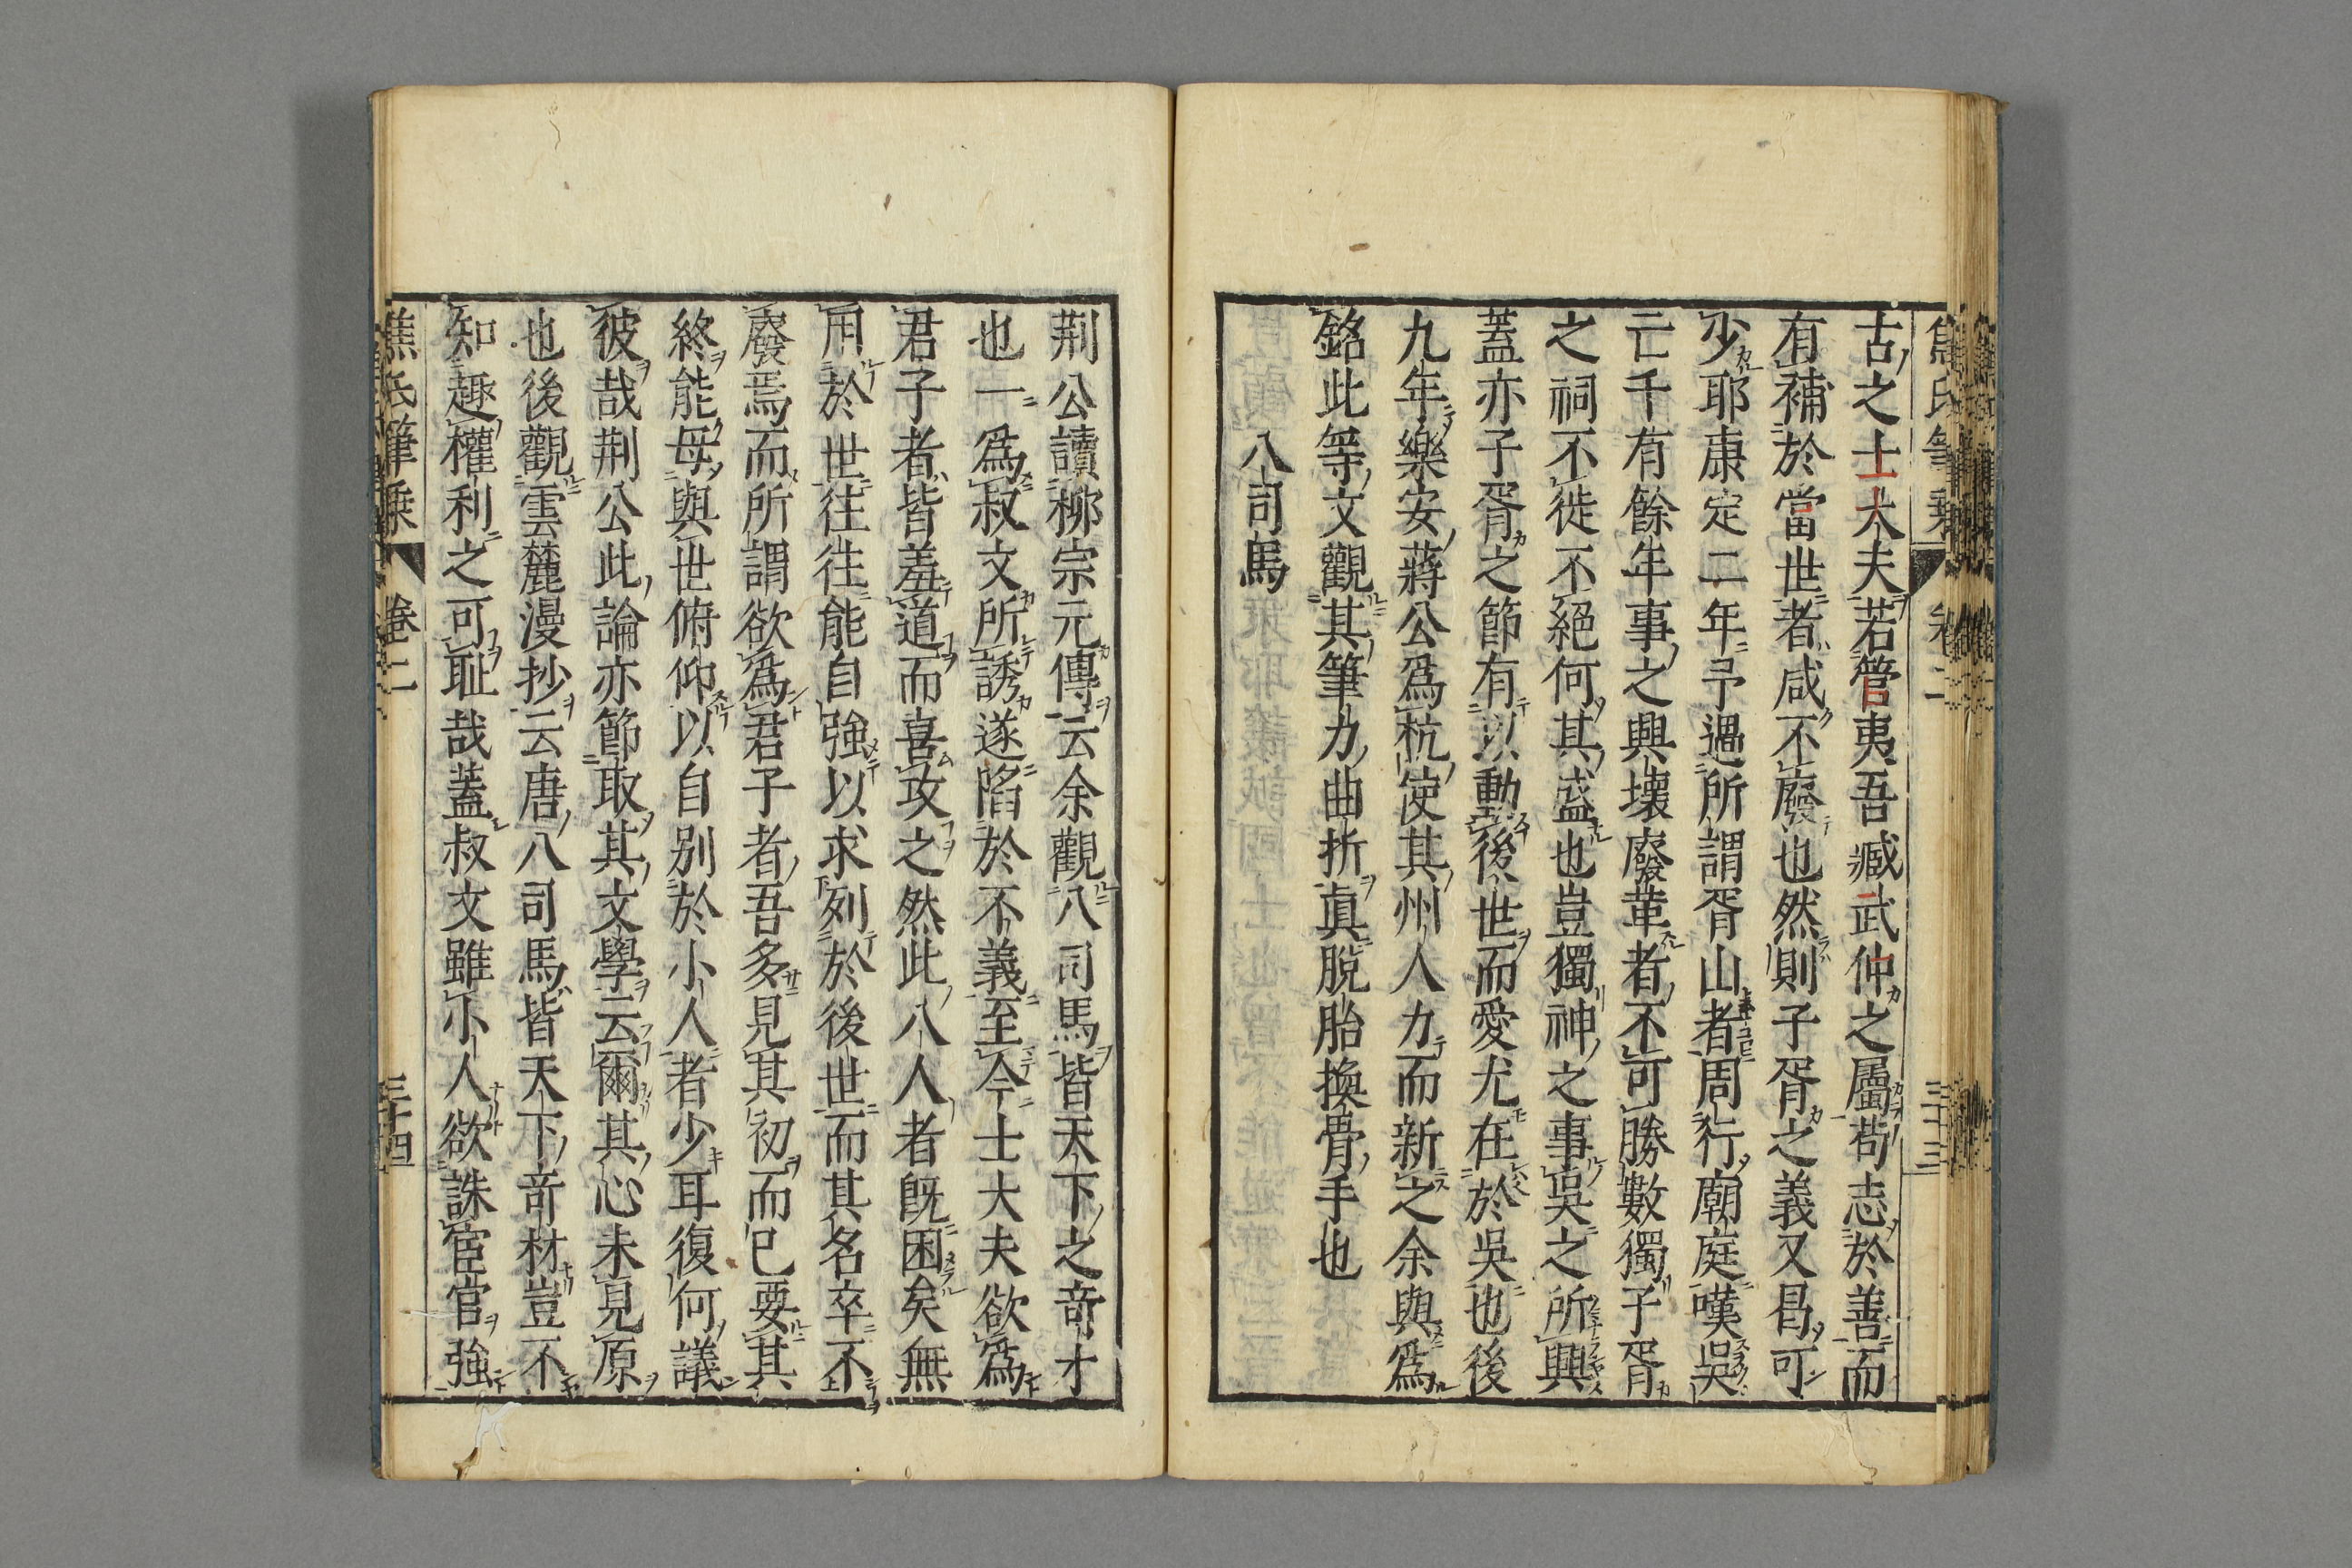 焦氏筆乗 卷二 三十三
古之士大夫若管夷吾臧武仲之屬苟志於善而
有補於當世者咸不廢也然則子胥之義又曷可
少耶康定二年予過所謂胥山者周行廟庭嘆吳
亡千有餘年事之興壞廢革者不可勝數獨子胥
之祠不徙不絕何其盛也豈獨神之事吳之所興
蓋亦子胥之節有以動後世而愛尤在於吳也後
九年樂安蔣公爲杭使其州人力而新之余與爲
銘此等文觀其筆力曲折真脫胎換骨手也
八司馬
荆公讀栁宗元傳云余觀八司馬皆天下之竒才
也一爲叔文所誘遂陷於不義至今士大夫欲爲
君子者皆羞道而喜攻之然此八人者既困矣無
用於世往往能自強以求列於後世而其名卒不
廢焉而所謂欲爲君子者吾多見其初而已要其
終能毋與世俯仰以自别於小人者少耳復何議
彼哉荆公此論亦節取其文學云爾其心未見原
也後觀雲麓漫抄云唐八司馬皆天下竒材豈不
知趣權利之可恥哉蓋叔文雖小人欲誅宦官強
焦氏筆乗 卷二 三十四